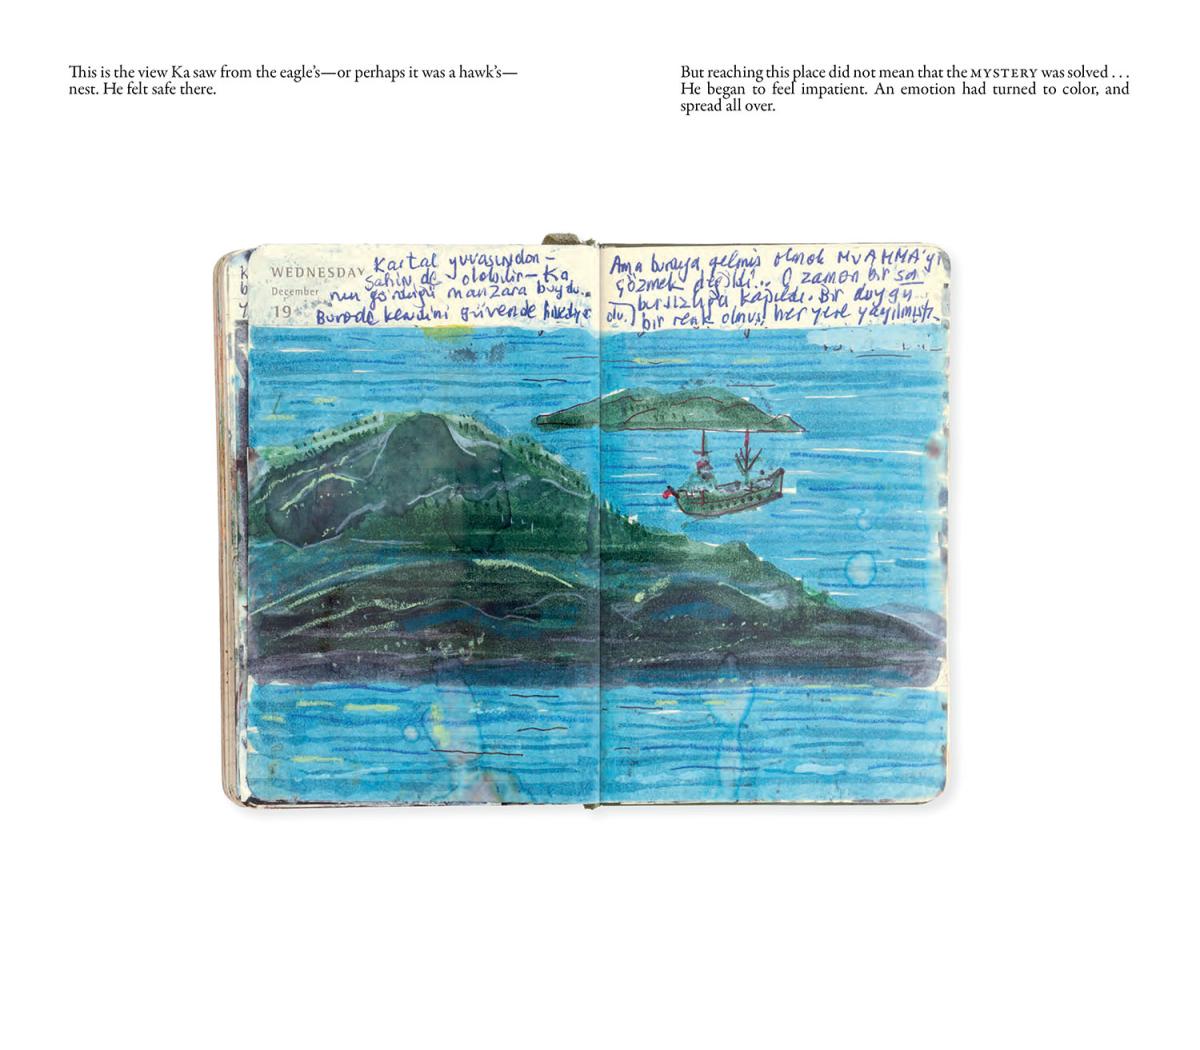 This is the view Ka saw from the eagle's—or perhaps it was a hawk's—
nest. He felt safe there.
But reaching this place did not mean that the MYSTERY was solved . . .
He began to feel impatient. An emotion had turned to color, and
spread all over.
WEDNESDAY
December
19
Kartal yuvasından –
Şahin de olabilir – Ka
nın gördüğü manzara buydu...
Burada kendini güvende hissediyor
du.
Ama buraya gelmiş olmak MUAMMA'yı
çözmek değildi... O zaman bir sa
bırsızlığa kapıldı. Bir duygu
bir renk olmuş her yere yayılmıştı.